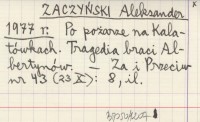 ZACZYŃSKI Aleksander
1977 r. Po pożarze na Kala-
tówkach. Tragedia braci Al-
bertynów. — Za i Przeciw
nr 43 (23 X): 8, il.